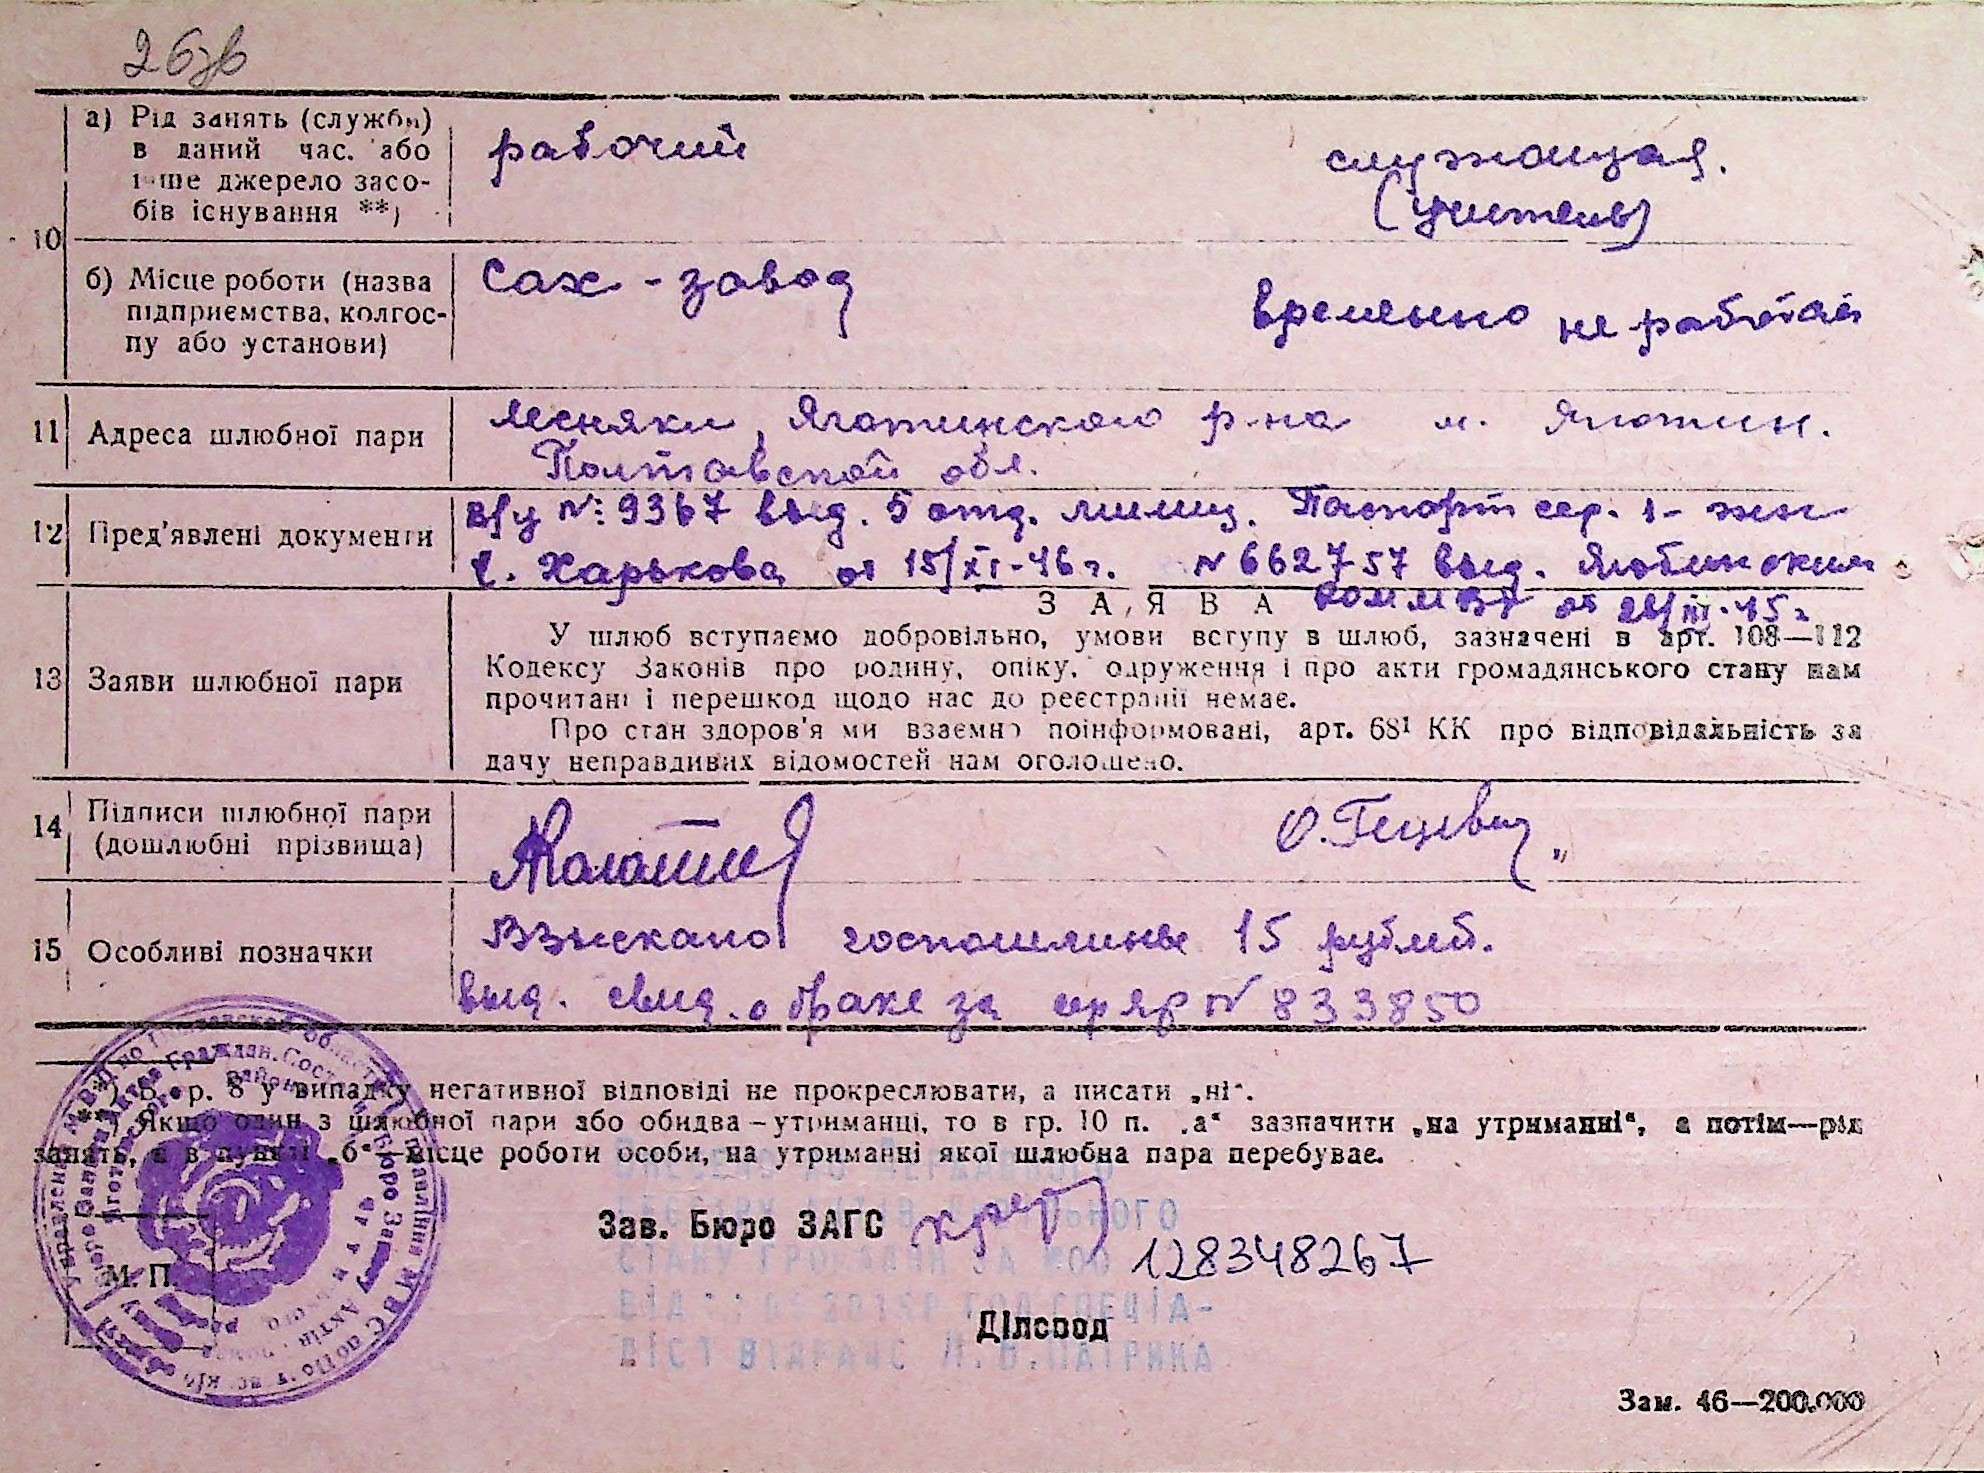 26зв
а) Рід занять (служби)
в даний час або
інше джерело засо-
бів існування **)
рабочий
служащая.
(учитель)
10
б) Місце роботи (назва
підприємства, колгос-
пу або установи)
Сах-завод
временно не работает
11 Адреса шлюбної пари
Лесняки, Яготинского р-на м. Яготин.
Полтавской обл.
12 Пред'явлені документи
в/у №: 9367 выд. 5 отд. милиц. Паспорт сер. 1-жн
г. Харькова от 15/XI-46 г. N 662757 выд. Яготинским
РОМ МВД от 28/III-45 г
З А Я В А
13 Заяви шлюбної пари
У шлюб вступаємо добровільно, умови вступу в шлюб, зазначені в арт. 108—112
Кодексу Законів про родину, опіку, одруження і про акти громадянського стану нам
прочитані і перешкод щодо нас до реєстрації немає.
Про стан здоров'я ми взаємно поінформовані, арт. 68¹ КК про відповідальність за
дачу неправдивих відомостей нам оголошено.
14 Підписи шлюбної пари
(дошлюбні прізвища)
О. Гецевич
15 Особливі позначки
Взыскано госпошлины 15 рублей.
выд. свид. о браке за сер яр N 833850
*) В гр. 8 у випадку негативної відповіді не прокреслювати, а писати „ні“.
**) Якщо один з шлюбної пари або обидва — утриманці, то в гр. 10 п. „а“ зазначити „на утриманні“, а потім—рід
занять, а в пункті „б“—місце роботи особи, на утриманні якої шлюбна пара перебуває.
Зав. Бюро ЗАГС
128348267
М. П.
Діловод
Зам. 46—200.000